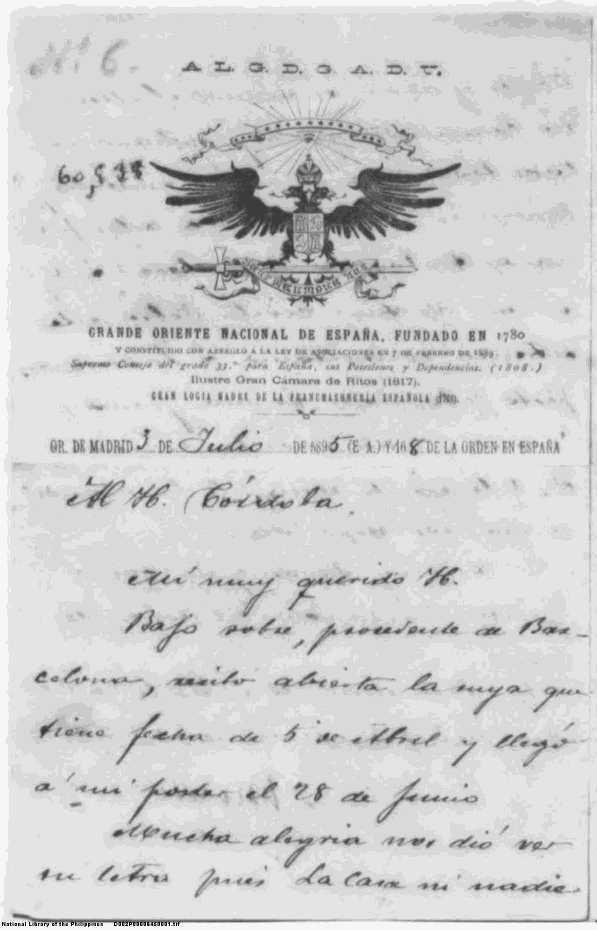 Nº 6.
A. L. G. D. G. A. D. U.
GRANDE ORIENTE NACIONAL DE ESPAÑA, FUNDADO EN 1780
Y CONSTITUIDO CON ARREGLO A LA LEY DE ASOCIACIONES EN 7 DE FEBRERO DE 1889
Supremo Consejo del grado 33.º para España, sus Posesiones y Dependencias. (1808.)
Ilustre Gran Cámara de Ritos (1817).
GRAN LOGIA MADRE DE LA FRANCMASONERÍA ESPAÑOLA
OR. DE MADRID 3 DE Julio DE 5895 (E A.) Y 168 DE LA ORDEN EN ESPAÑA
Al H. Córdoba.
Mi muy querido H.
Bajo sobre, procedente de Bar-
celona, recibo abierta la suya que
tiene fecha de 5 de Abril y llegó
á mi poder el 28 de Junio
Mucha alegria nos dió ver
su letra pues La Casa ni nadie
National Library of the Philippines